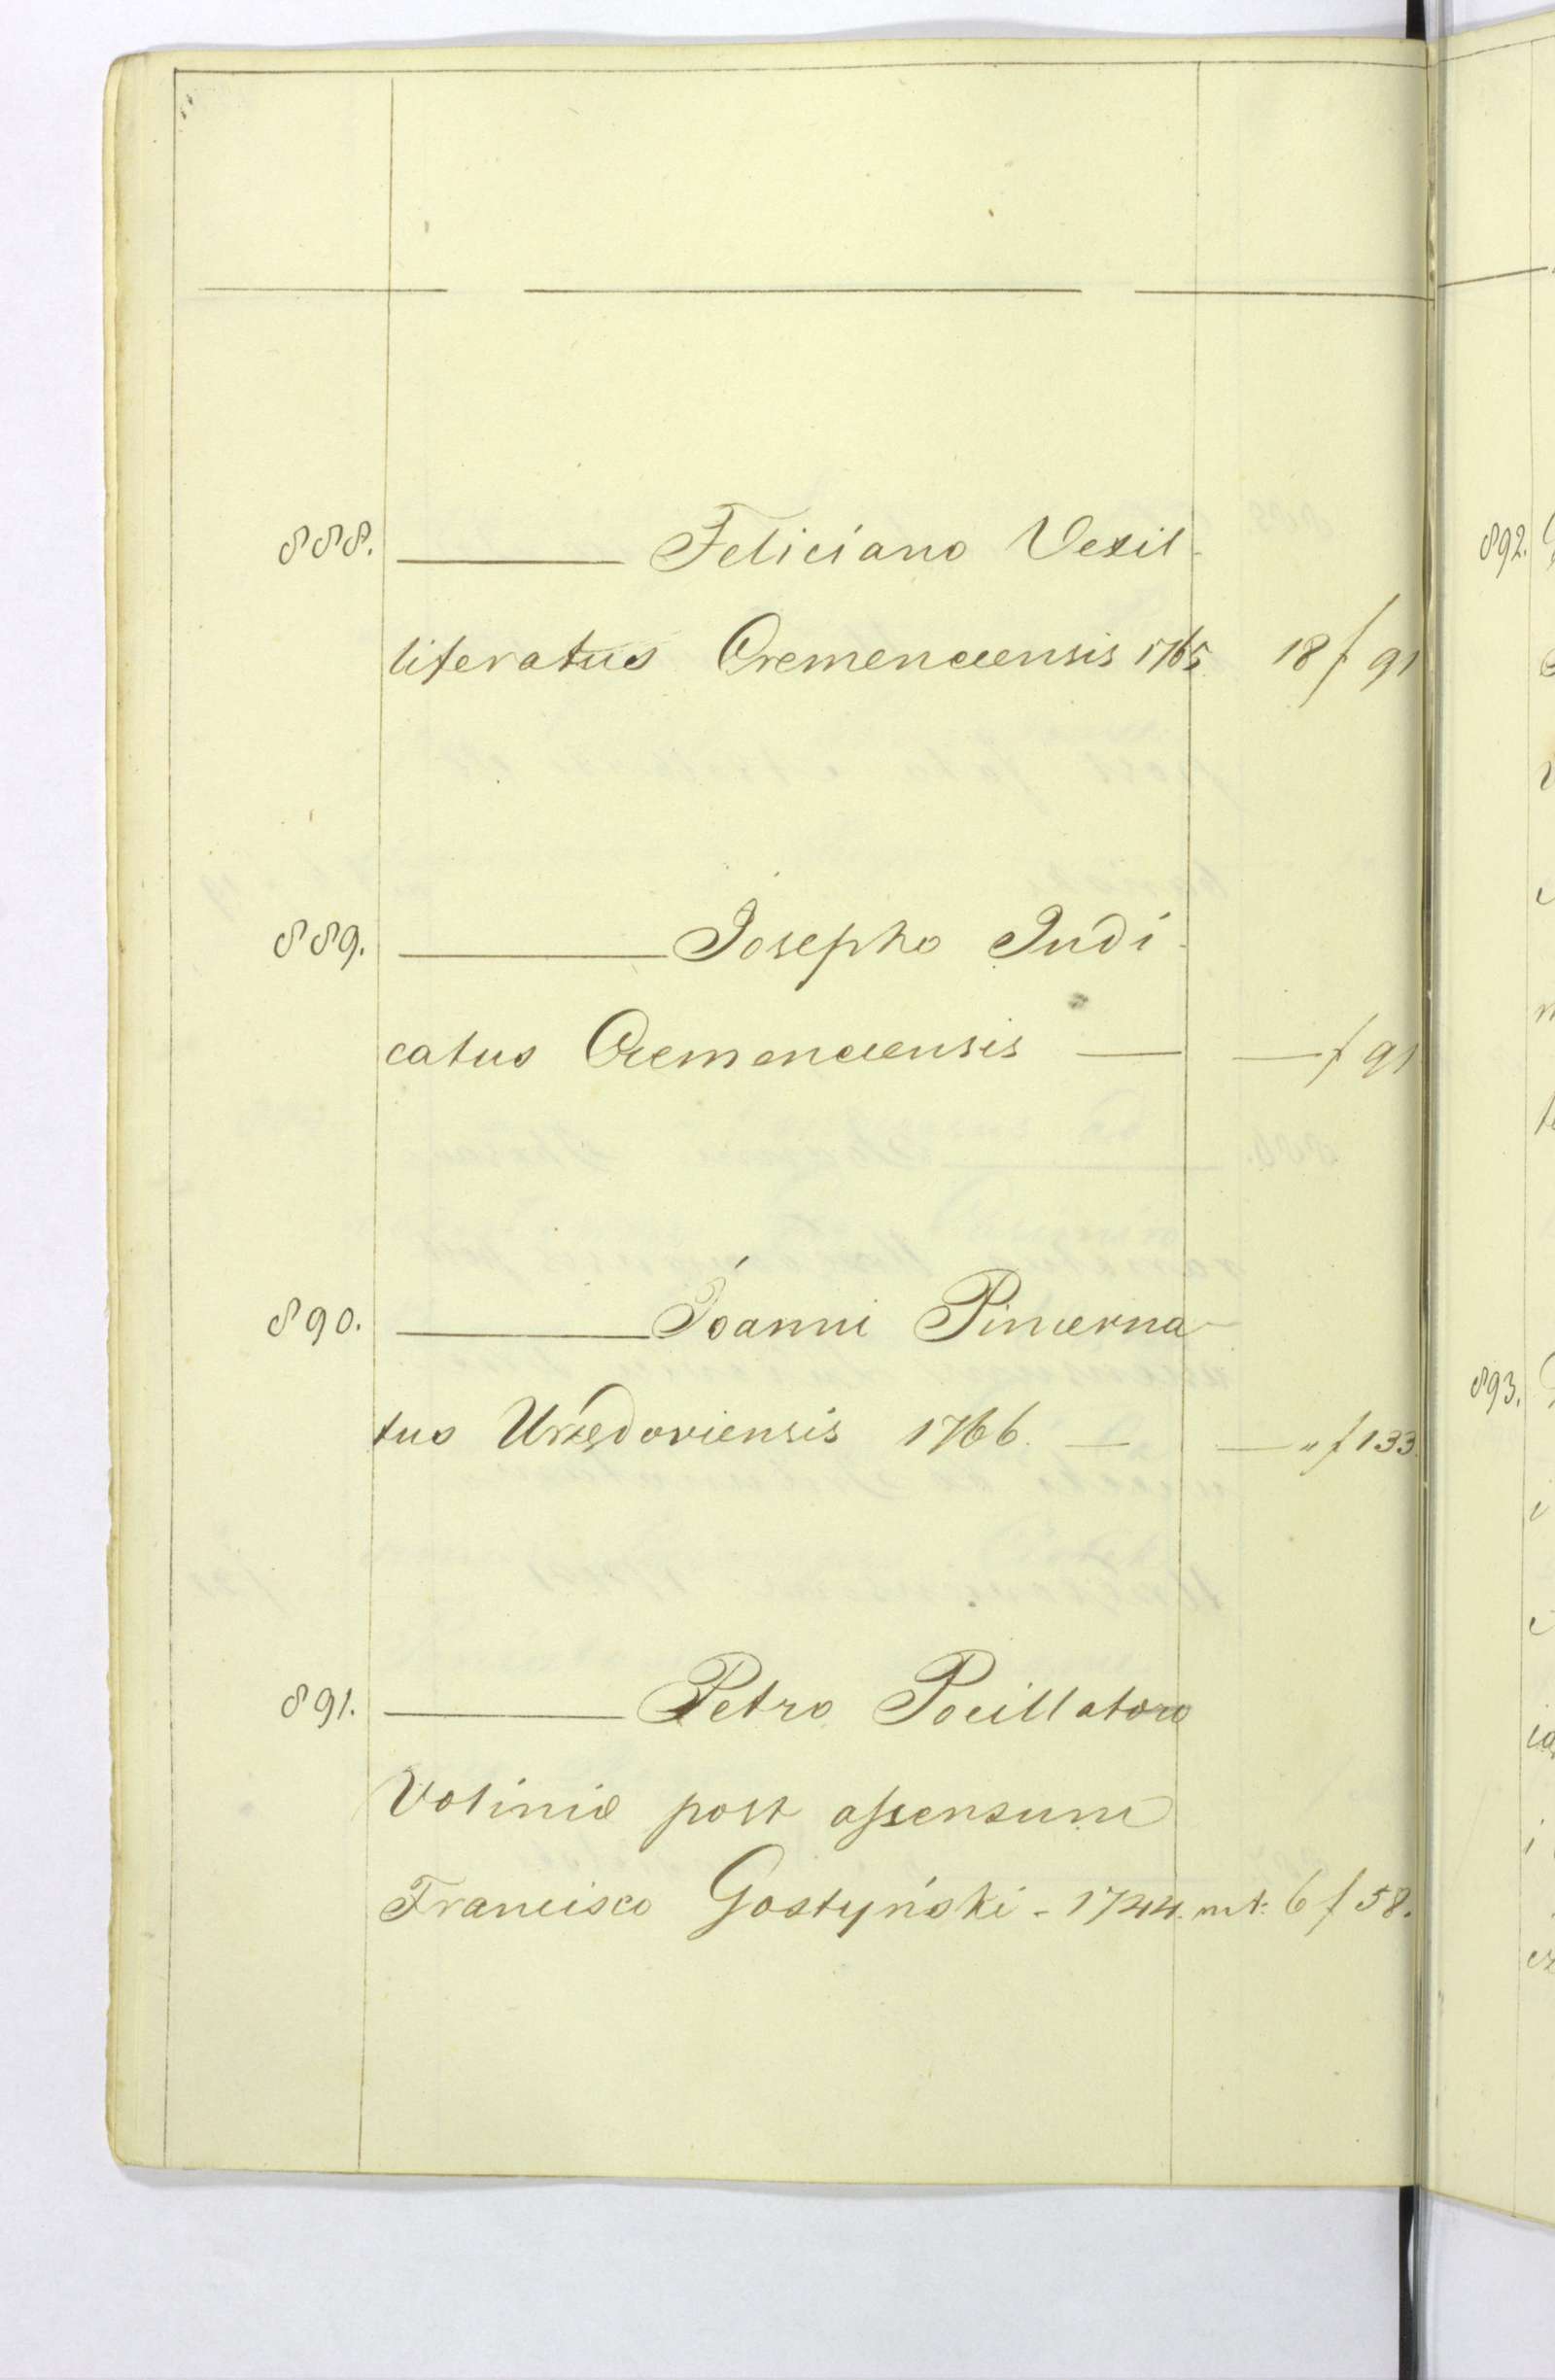 888. ——— Feliciano Vexil-
liferatus Cremenecensis 1765 18 f 91
889. ——— Josepho Judi-
catus Cremenecensis — — f 91
890. ——— Joanni Pincerna-
tus Urzędoviensis 1766. — — „ f 133.
891. ——— Petro Pocillatoro
Voliniæ post assensum
Francisco Gostyński - 1744. mt: 6 f 58.
892.
893.